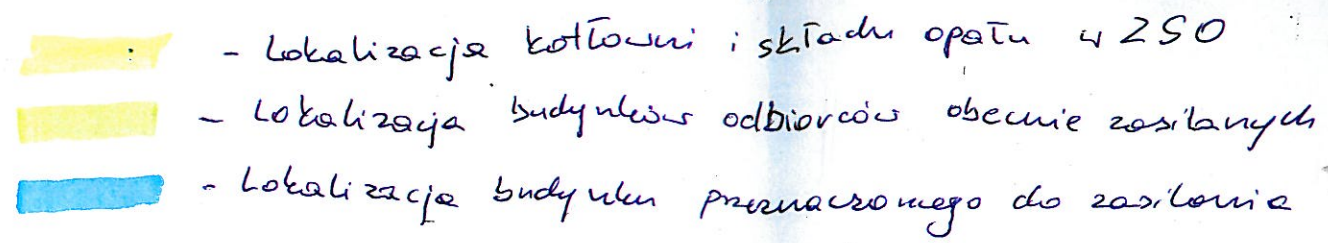 - Lokalizacja kotłowni i składu opału w ZSO
- Lokalizacja budynków odbiorców obecnie zasilanych
- Lokalizacja budynku przeznaczonego do zasilania